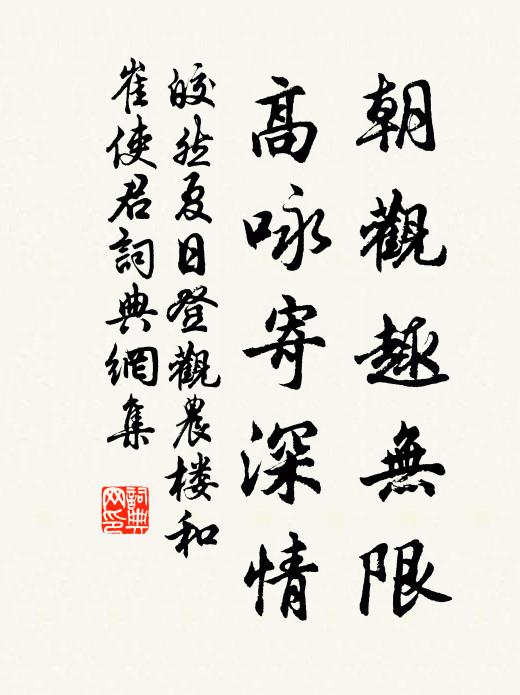 朝觀趣無限
高咏寄深情
皎然夏日登觀農楼和
崔使君詞典網集
詞典網印